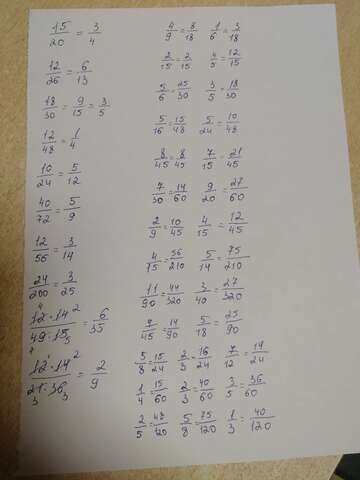 15/20 = 3/4
12/26 = 6/13
18/30 = 9/15 = 3/5
12/48 = 1/4
10/24 = 5/12
40/72 = 5/9
12/56 = 3/14
24/200 = 3/25
12·14/49·15 = 6/35
12·14/21·36 = 2/9
4/9 = 8/18 1/6 = 3/18
2/15 = 2/15 4/5 = 12/15
5/6 = 25/30 3/5 = 18/30
5/16 = 15/48 5/24 = 10/48
8/45 = 8/45 7/15 = 21/45
7/30 = 14/60 9/20 = 27/60
2/9 = 10/45 4/15 = 12/45
4/75 = 56/210 5/14 = 75/210
11/90 = 44/320 3/40 = 27/320
7/45 = 14/90 5/18 = 25/90
5/8 = 15/24 2/3 = 16/24 7/12 = 14/24
1/4 = 15/60 2/3 = 40/60 3/5 = 36/60
2/5 = 48/120 5/8 = 75/120 1/3 = 40/120